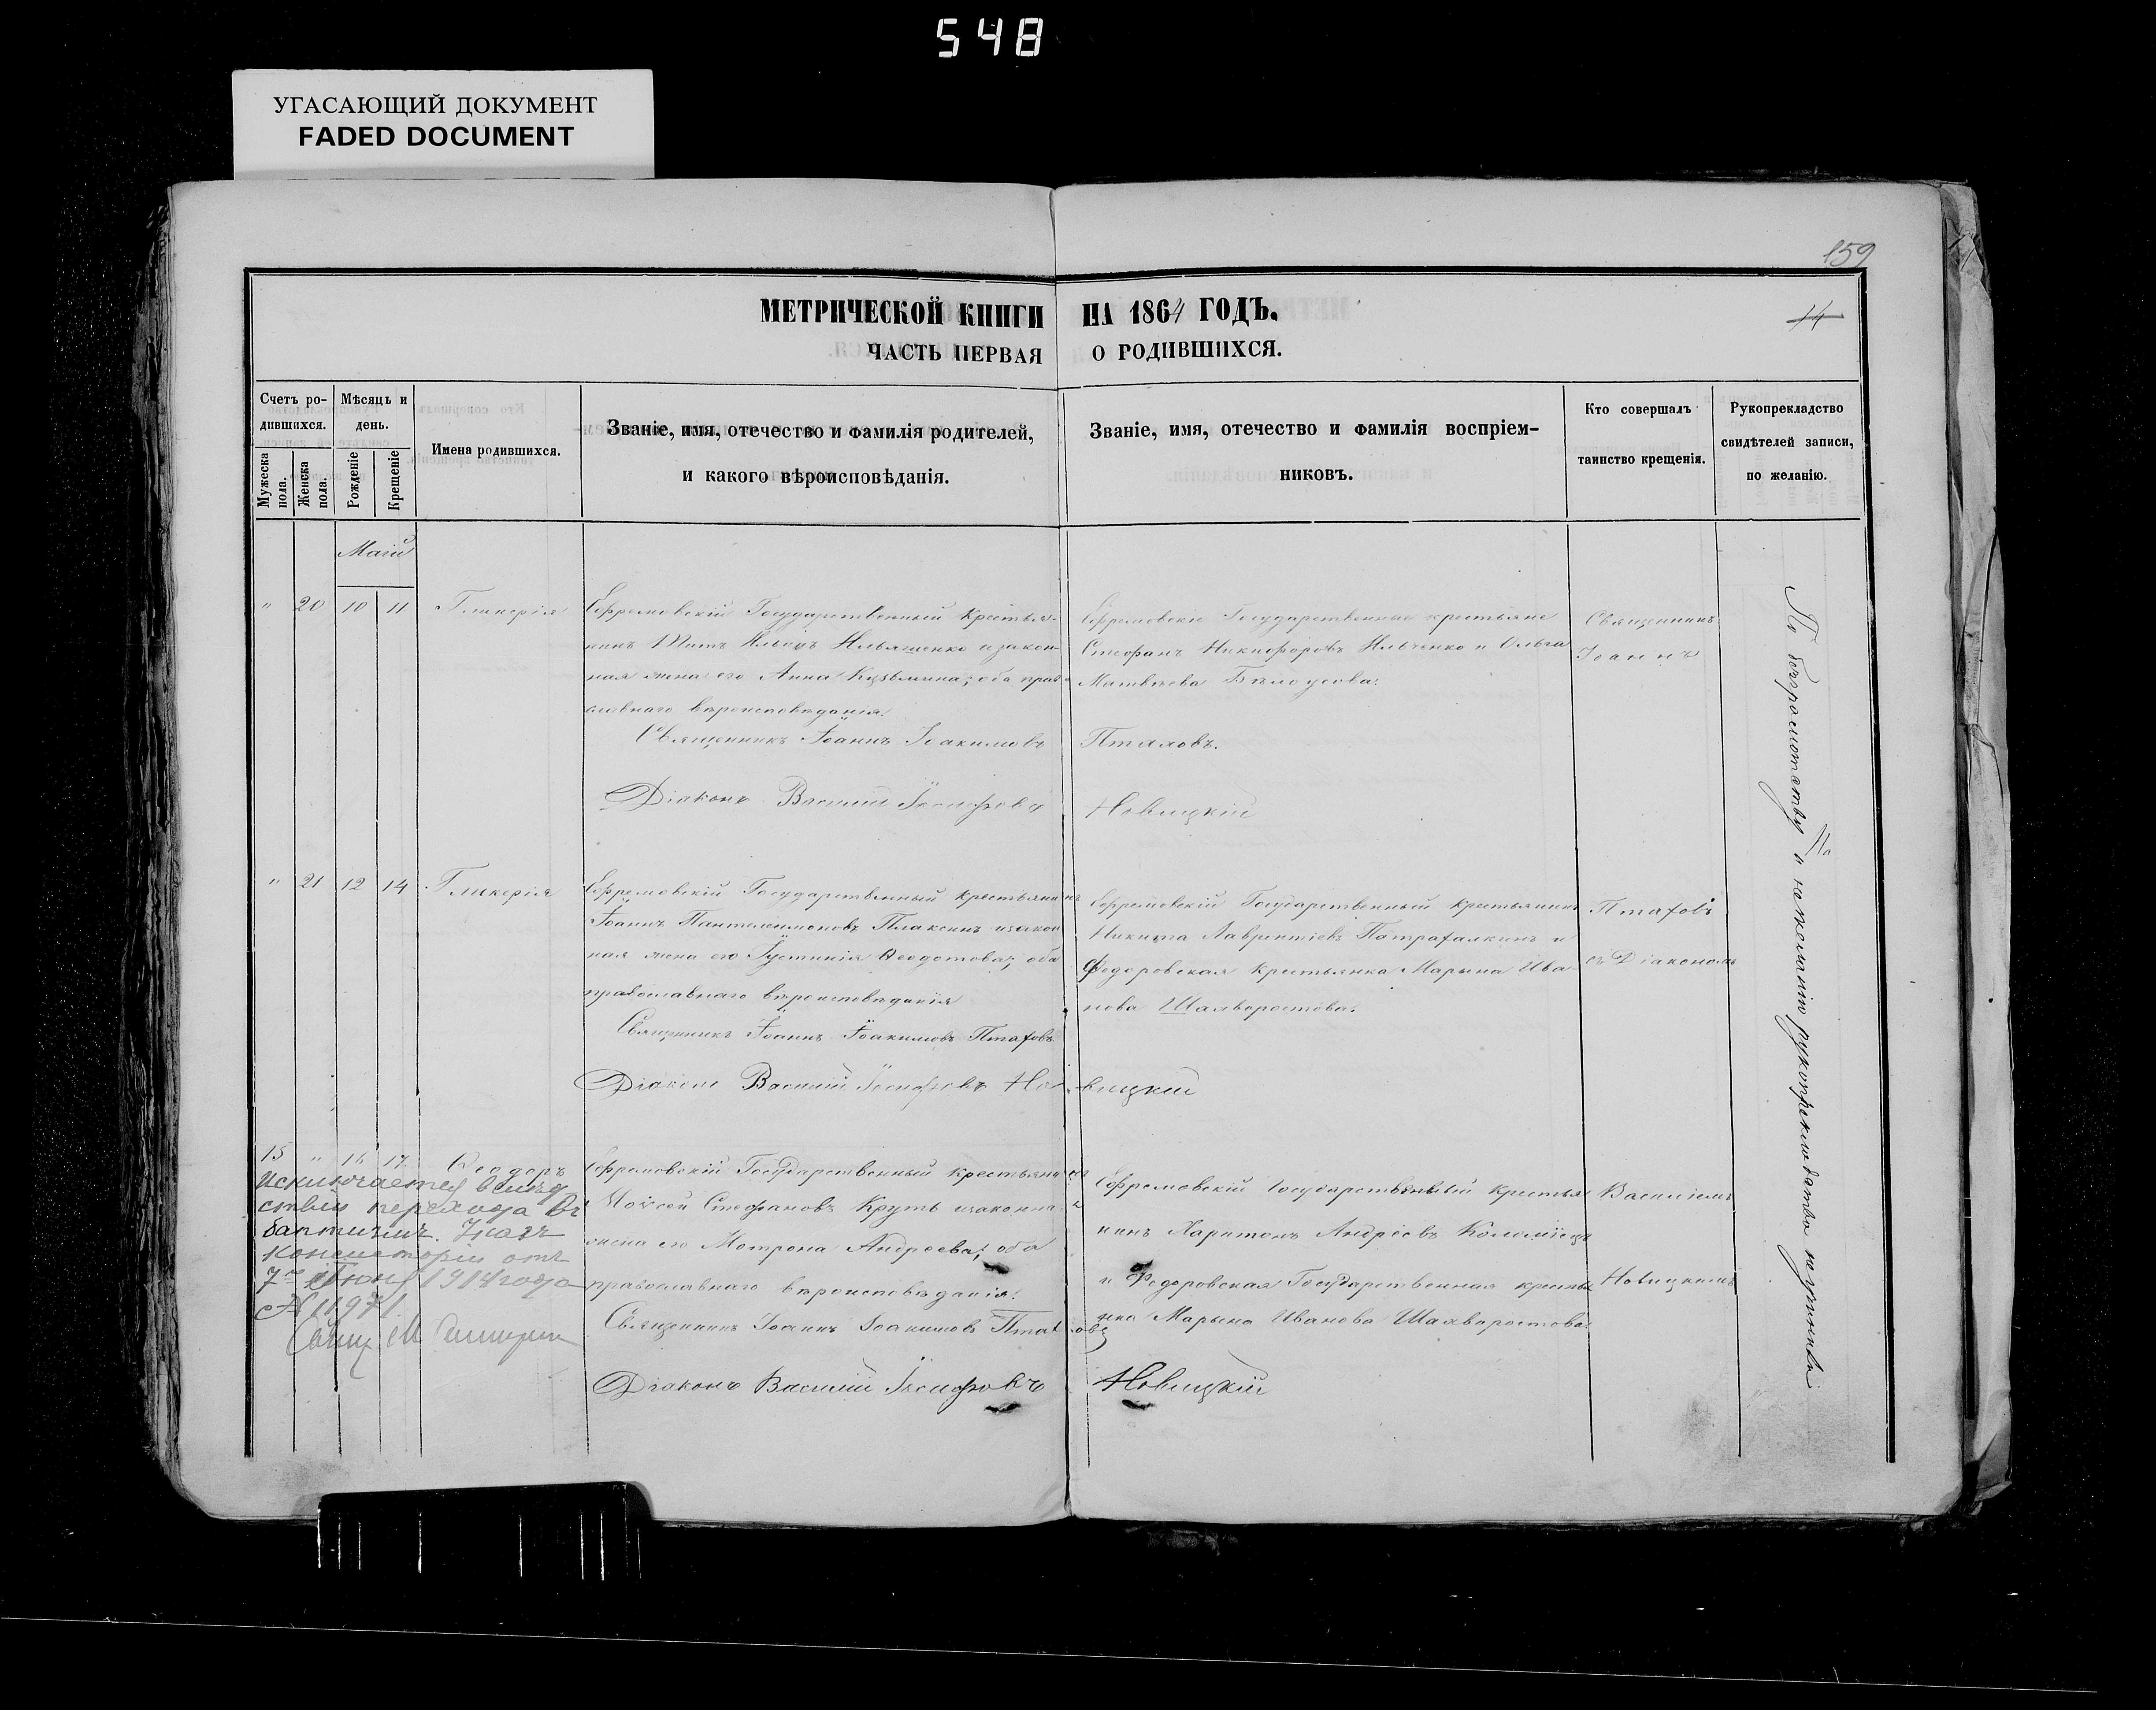 548
УГАСАЮЩИЙ ДОКУМЕНТ
FADED DOCUMENT
159
МЕТРИЧЕСКОЙ КНИГИ НА 1864 ГОДЪ.
14
ЧАСТЬ ПЕРВАЯ О РОДИВШИХСЯ.
Счетъ ро-
дившихся.
Мужеска
пола.
Женска
пола.
Мѣсяцъ и
день.
Рожденіе
Крещеніе
Имена родившихся.
Званіе, имя, отечество и фамилія родителей,
и какого вѣроисповѣданія.
Званіе, имя, отечество и фамилія воспріем-
никовъ.
Кто совершалъ
таинство крещенія.
Рукоприкладство
свидѣтелей записи,
по желанію.
Маій
" 20 10 11 Гликерія
Ефремовскій Государственный крестья-
нинъ Титъ Ильинъ Ильяшенко и закон-
ная жена его Анна Кузьмина; оба право
славнаго вѣроисповѣданія.
Священникъ Іоаннъ Іоакимовъ Птаховъ.
Діаконъ Василій Іосифовъ Новицкій
Ефремовскіе Государственные крестьяне
Стефанъ Никифоровъ Ильченко и Ольга
Матвѣева Бѣлоусова.
Священникъ
Іоаннъ
" 21 12 14 Гликерія
Ефремовскій Государственный крестьянинъ
Іоаннъ Пантелеимоновъ Плаксинъ и закон
ная жена его Іустинія Ѳеодотова; оба
православнаго вѣроисповѣданія
Священникъ Іоаннъ Іоакимовъ Птаховъ
Діаконъ Василій Іосифовъ Новицкій
Ефремовскій Государственный крестьянинъ
Никита Лаврентіевъ и
Федоровская крестьянка Марьяна Ива-
нова Шахворостова.
Птаховъ
съ Діакономъ
15 " 16 17 Ѳеодоръ
Ефремовскій Государственный крестьянинъ
Моѵсей Стефановъ Круть и законная
жена его Мотрона Андреева; оба
православнаго вѣроисповѣданія.
Священникъ Іоаннъ Іоакимовъ Птаховъ
Діаконъ Василій Іосифовъ Новицкій
Ефремовскій Государственный крестья
нинъ Харитонъ Андреевъ Коломіецъ
и Федоровская Государственная крестья
нка Марьяна Иванова Шахворостова.
Василіемъ
Новицкимъ
Исключается вслѣд
ствіи перехода въ
баптизмъ. Указъ
консисторіи отъ
7го Іюня 1914 года
№ 11971
Свящ. М.
По безграмотству и нежеланію рукоприкладства не учинили